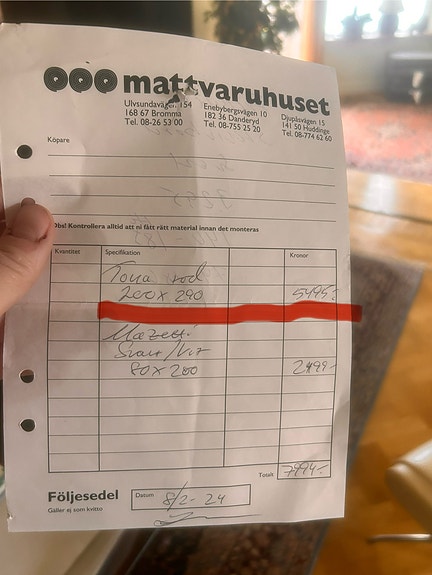 mattvaruhuset
Ulvsundavägen 154
168 67 Bromma
Tel. 08-26 53 00
Enebybergsvägen 10
182 36 Danderyd
Tel. 08-755 25 20
Djupåsvägen 15
141 50 Huddinge
Tel. 08-774 62 60
Köpare
Obs! Kontrollera alltid att ni fått rätt material innan det monteras
Kvantitet Specifikation Kronor
röd
200x290 5495:-
Svart/Vit
80x200 2499:-
Totalt 7994:-
Följesedel
Gäller ej som kvitto
Datum 8/2-24